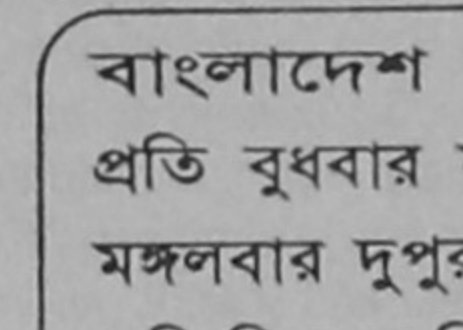 বাংলাদেশ
প্রতি বুধবার
মঙ্গলবার দুপুর